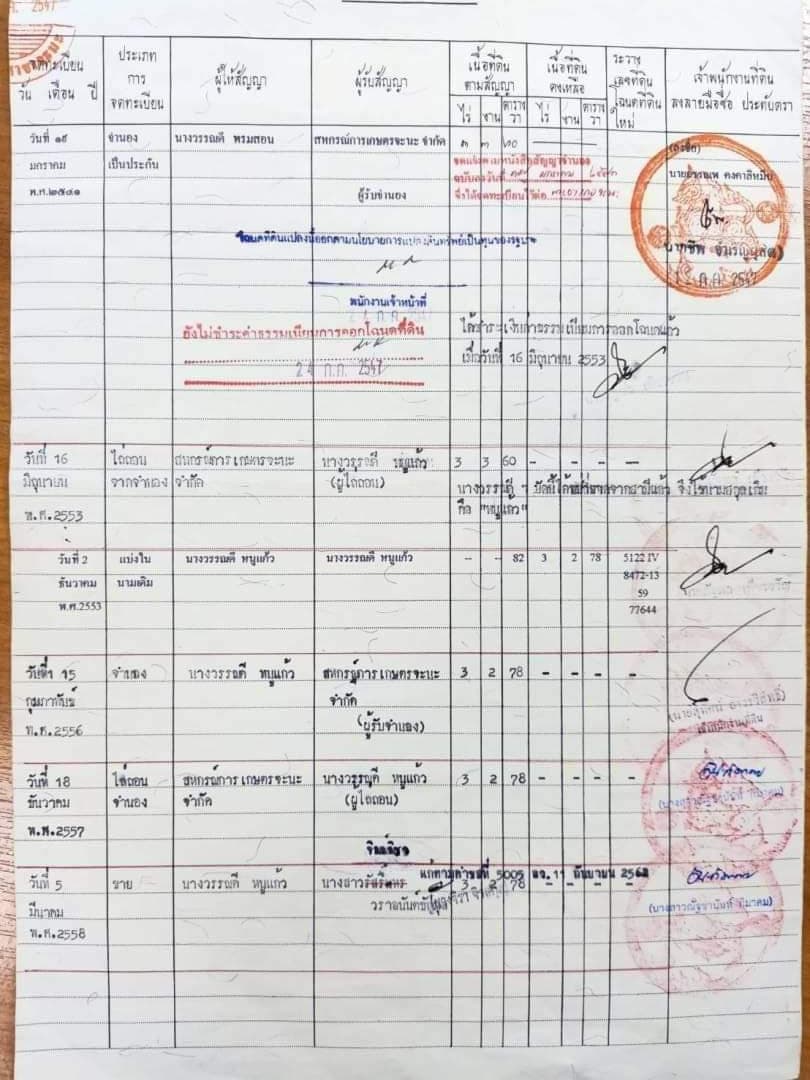 2547
จดทะเบียน
วัน เดือน ปี
ประเภท
การ
จดทะเบียน
ผู้ให้สัญญา
ผู้รับสัญญา
เนื้อที่ดิน
ตามสัญญา
ไร่ งาน ตาราง
วา
เนื้อที่ดิน
คงเหลือ
ไร่ งาน ตาราง
วา
ระวาง
เลขที่ดิน
โฉนดที่ดิน
ใหม่
เจ้าพนักงานที่ดิน
ลงลายมือชื่อ ประทับตรา
วันที่ ๑๙ จำนอง นางวรรณดี พรมสอน สหกรณ์การเกษตรจะนะ จำกัด ๓ ๓ ๖๐
มกราคม เป็นประกัน
พ.ศ.๒๕๔๑ ผู้รับจำนอง
(ลงชื่อ)
๒ ก.ค. 2547
โฉนดที่ดินแปลงนี้ออกตามนโยบายการแปลงสินทรัพย์เป็นทุนของรัฐบาล
พนักงานเจ้าหน้าที่
ยังไม่ชำระค่าธรรมเนียมการออกโฉนดที่ดิน
24 ก.ค. 2547
ได้ชำระเงินค่าธรรมเนียมการออกโฉนดแล้ว
เมื่อวันที่ 16 มิถุนายน 2553
วันที่ 16 ไถ่ถอน สหกรณ์การเกษตรจะนะ นางวรรณดี หนูแก้ว 3 3 60 - - - -
มิถุนายน จากจำนอง จำกัด (ผู้ไถ่ถอน)
พ.ศ.2553
นางวรรณดี ฯ
คือ "หนูแก้ว"
วันที่ 2 แบ่งใน นางวรรณดี หนูแก้ว นางวรรณดี หนูแก้ว -- -- 82 3 2 78 5122 IV
ธันวาคม นามเดิม 8472-13
พ.ศ.2553 59
77644
วันที่ 15 จำนอง นางวรรณดี หนูแก้ว สหกรณ์การเกษตรจะนะ 3 2 78 - - - -
กุมภาพันธ์ จำกัด
พ.ศ.2556 (ผู้รับจำนอง)
เจ้าพนักงานที่ดิน
วันที่ 18 ไถ่ถอน สหกรณ์การเกษตรจะนะ นางวรรณดี หนูแก้ว 3 2 78 - - - -
ธันวาคม จำนอง จำกัด (ผู้ไถ่ถอน)
พ.ศ.2557
แก้ตามคำขอที่ 5005 ลว. 11 กันยายน 2562
วันที่ 5 ขาย นางวรรณดี หนูแก้ว นางสาว 3 2 78 - - -
มีนาคม
พ.ศ.2558